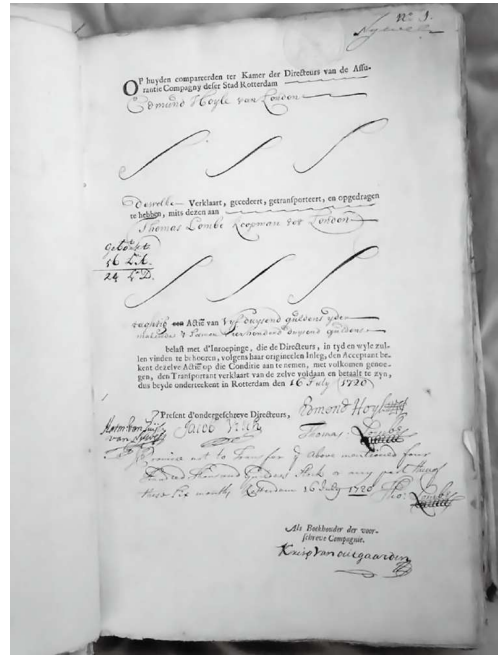 No. 1.
OP huyden compareerden ter Kamer der Directeurs van de Assu-
rantie Compagny deser Stad Rotterdam
Edmund Hoyle van London
Deswelke Verklaart, gecedeert, getransporteert, en opgedragen
te hebben, mits dezen aan
Thomas Lombe Koopman tot London
56
24
tachtig een Actiẽ van Vyf duysend guldens yder
vierhonderd duysend guldens
belast met d'Inroepinge, die de Directeurs, in tyd en wyle zul-
len vinden te behooren, volgens haar origineelen Inleg, den Acceptant be-
kent dezelve Actiẽ op die Conditie aan te nemen, met volkomen genoe-
gen, den Transportant verklaart van de zelve voldaan en betaalt te zyn,
dus beyde onderteekent in Rotterdam den 16 July 1720
Present d'ondergeschreve Directeuren,
Edmond Hoyle
Jacob
Thomas Lombe
Promise not to Transfer ye Above mentioned four
hundred thousand Guilders Stock or any part thereof
these Six months Rotterdam 16 July 1720 Tho: Lombe
Als Boekhouder der voor-
schreve Compagnie.